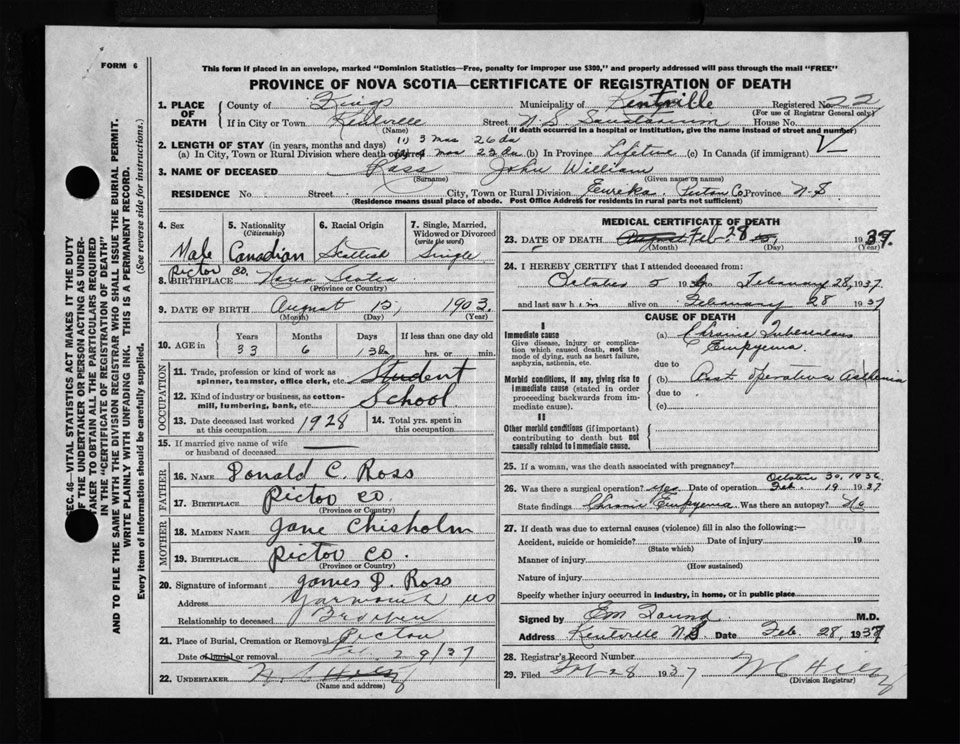 FORM 6
This form if placed in an envelope, marked "Dominion Statistics—Free, penalty for improper use $300," and properly addressed will pass through the mail "FREE"
PROVINCE OF NOVA SCOTIA—CERTIFICATE OF REGISTRATION OF DEATH
SEC. 46—VITAL STATISTICS ACT MAKES IT THE DUTY
OF THE UNDERTAKER OR PERSON ACTING AS UNDER-
TAKER TO OBTAIN ALL THE PARTICULARS REQUIRED
IN THE "CERTIFICATE OF REGISTRATION OF DEATH"
AND TO FILE THE SAME WITH THE DIVISION REGISTRAR WHO SHALL ISSUE THE BURIAL PERMIT.
WRITE PLAINLY WITH UNFADING INK. THIS IS A PERMANENT RECORD.
Every item of information should be carefully supplied. (See reverse side for instructions.)
1. PLACE OF DEATH
County of Kings Municipality of Kentville Registered No. 22
(For use of Registrar General only)
If in City or Town Kentville Street N.S. Sanatorium House No.
(Name) (If death occurred in a hospital or institution, give the name instead of street and number)
2. LENGTH OF STAY (in years, months and days) (1) 3 mos 26 da
(a) In City, Town or Rural Division where death occurred 4 mos 23 da (b) In Province Lifetime (c) In Canada (if immigrant)
3. NAME OF DECEASED Ross John William
(Surname) (Given name or names)
RESIDENCE No. Street City, Town or Rural Division Eureka Pictou Co Province N.S
(Residence means usual place of abode. Post Office Address for residents in rural parts not sufficient)
4. Sex Male
5. Nationality (Citizenship) Canadian
6. Racial Origin Scottish
7. Single, Married, Widowed or Divorced (write the word) Single
Pictou Co.
8. BIRTHPLACE Nova Scotia
(Province or Country)
9. DATE OF BIRTH August 15, 1903
(Month) (Day) (Year)
10. AGE in Years Months Days If less than one day old
33 6 13da hrs. or min.
OCCUPATION
11. Trade, profession or kind of work as
spinner, teamster, office clerk, etc. Student
12. Kind of industry or business, as cotton-
mill, lumbering, bank, etc. School
13. Date deceased last worked at this occupation 1928
14. Total yrs. spent in this occupation
15. If married give name of wife
or husband of deceased
FATHER
16. NAME Donald C. Ross
17. BIRTHPLACE Pictou Co
(Province or Country)
MOTHER
18. MAIDEN NAME Jane Chisholm
19. BIRTHPLACE Pictou Co.
(Province or Country)
20. Signature of informant James D. Ross
Address Yarmouth NS
Relationship to deceased Brother
21. Place of Burial, Cremation or Removal Pictou
Date of burial or removal 29/37
22. UNDERTAKER
(Name and address)
MEDICAL CERTIFICATE OF DEATH
23. DATE OF DEATH August Feb. 28 15, 1937.
(Month) (Day) (Year)
24. I HEREBY CERTIFY that I attended deceased from:
October 5 193 to February 28, 1937.
and last saw him alive on February 28 1937
CAUSE OF DEATH
I
Immediate cause
Give disease, injury or complica-
tion which caused death, not the
mode of dying, such as heart failure,
asphyxia, asthenia, etc.
(a) Chronic Tuberculous
Empyema
due to
Morbid conditions, if any, giving rise to
immediate cause (stated in order
proceeding backwards from im-
mediate cause).
(b) Post operative Asthenia
due to
(c)
II
Other morbid conditions (if important)
contributing to death but not
causally related to immediate cause.
25. If a woman, was the death associated with pregnancy?
October 30, 1936
26. Was there a surgical operation? yes Date of operation Feb. 19 1937
State findings Chronic Empyema Was there an autopsy? No
27. If death was due to external causes (violence) fill in also the following:—
Accident, suicide or homicide? Date of injury 19
(State which)
Manner of injury
(How sustained)
Nature of injury
Specify whether injury occurred in industry, in home, or in public place
Signed by M.D.
Address Kentville N.S. Date Feb. 28, 1937
28. Registrar's Record Number
29. Filed Feb 28 1937
(Division Registrar)